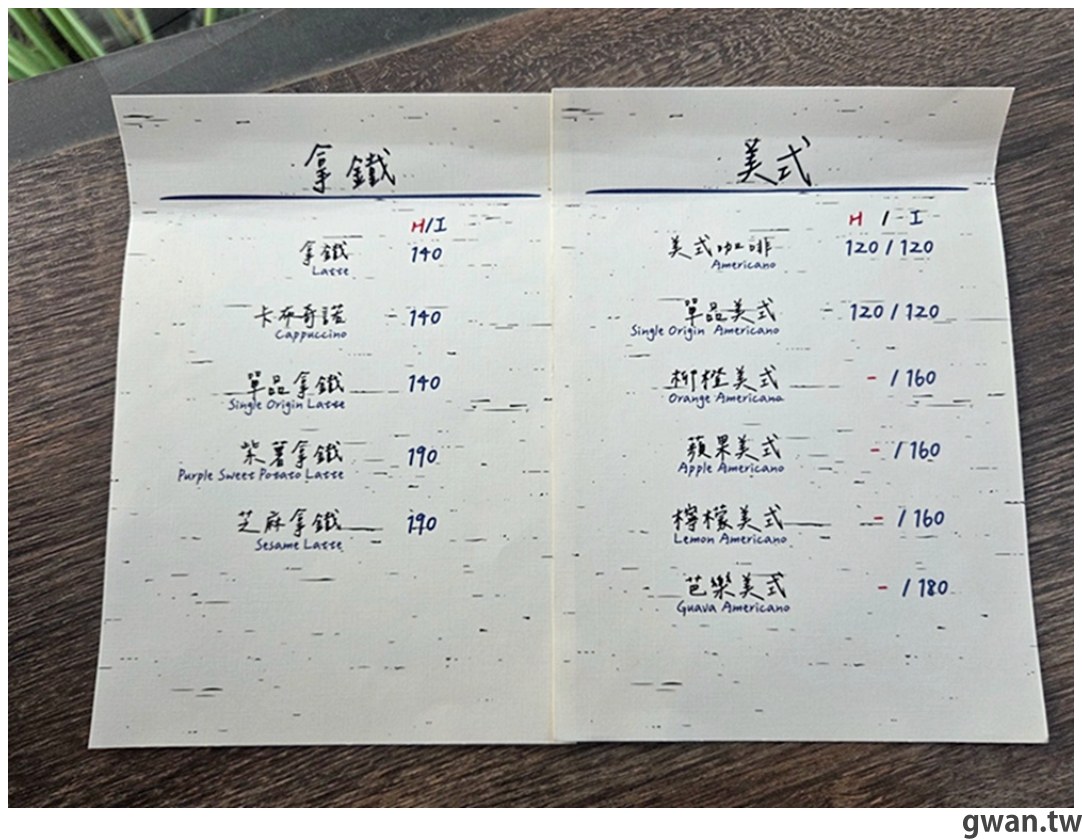 拿鐵
H/I
拿鐵 140
Latte
卡布奇諾 140
Cappuccino
單品拿鐵 140
Single Origin Latte
紫薯拿鐵 190
Purple Sweet Potato Latte
芝麻拿鐵 190
Sesame Latte
美式
H / I
美式咖啡 120 / 120
Americano
單品美式 120 / 120
Single Origin Americano
柳橙美式 - / 160
Orange Americano
蘋果美式 - / 160
Apple Americano
檸檬美式 - / 160
Lemon Americano
芭樂美式 - / 180
Guava Americano
gwan.tw